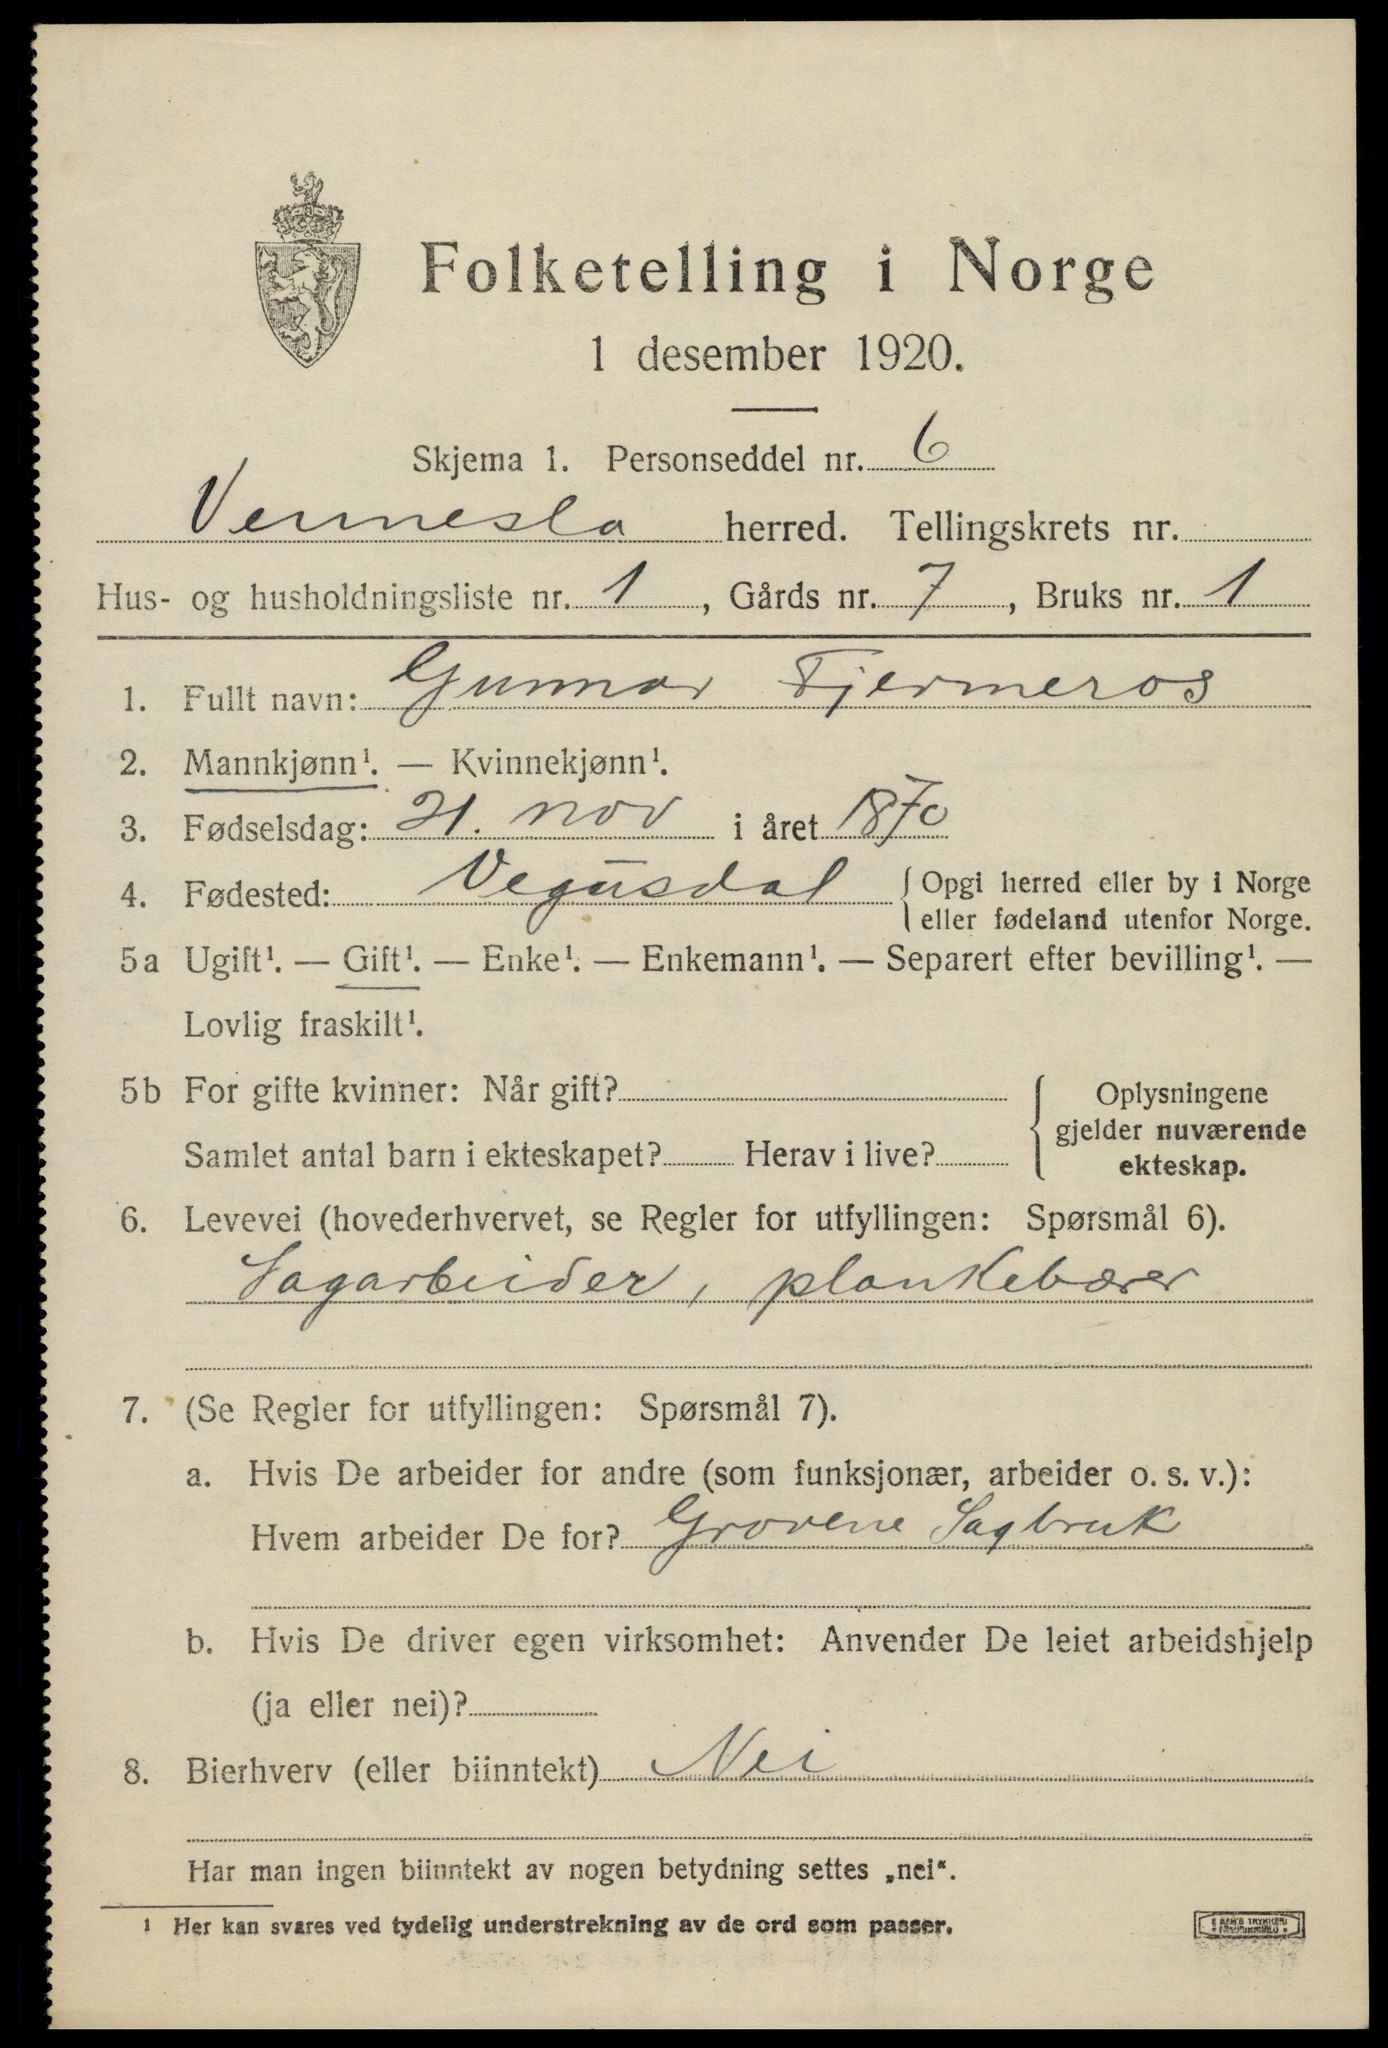 Folketelling i Norge
1 desember 1920.
Skjema 1. Personseddel nr. 6
Vennesla herred. Tellingskrets nr.
Hus- og husholdningsliste nr. 1, Gårds nr. 7, Bruks nr. 1
1. Fullt navn: Gunnar Fjermeros
2. Mannkjønn¹. — Kvinnekjønn¹.
3. Fødselsdag: 21. nov i året 1870
4. Fødested: Vegusdal {Opgi herred eller by i Norge
eller fødeland utenfor Norge.
5a Ugift¹. — Gift¹. — Enke¹. — Enkemann¹. — Separert efter bevilling¹. —
Lovlig fraskilt¹.
5b For gifte kvinner: Når gift? { Oplysningene
gjelder nuværende
Samlet antal barn i ekteskapet? Herav i live?
ekteskap.
6. Levevei (hovederhvervet, se Regler for utfyllingen: Spørsmål 6).
Sagarbeider, plankebærer
7. (Se Regler for utfyllingen: Spørsmål 7).
a. Hvis De arbeider for andre (som funksjonær, arbeider o. s. v.):
Hvem arbeider De for? Grovene Sagbruk
b. Hvis De driver egen virksomhet: Anvender De leiet arbeidshjelp
(ja eller nei)?
8. Bierhverv (eller biinntekt) Nei
Har man ingen biinntekt av nogen betydning settes „nei“.
¹ Her kan svares ved tydelig understrekning av de ord som passer.